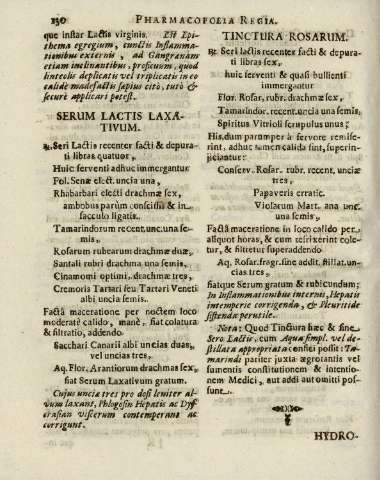 130 PHARMACOPOEIA REGIA.
que instar Lactis virginis. Est Epi-
thema egregium, cunctis Inflamma-
tionibus externis, ad Gangrænam
etiam inclinantibus, proficuum, quod
linteolis deplicatis vel triplicatis in eo
calidè madefactis sæpius citò, tutò &
securè applicari potest.
SERUM LACTIS LAXA-
TIVUM.
℞. Seri Lactis recenter facti & depura-
ti libras quatuor,
Huic ferventi adhuc immergantur
Fol. Senæ elect. uncia una,
Rhabarbari electi drachmæ sex,
ambobus parùm conscissis & in
sacculo ligatis.
Tamarindorum recent. unc. una se-
mis,
Rosarum rubearum drachmæ duæ,
Santali rubri drachma una semis,
Cinamomi optimi, drachmæ tres,
Cremoris Tartari seu Tartari Veneti
albi uncia semis.
Facta maceratione per noctem loco
moderatè calido, manè, fiat colatura
& filtratio, addendo
Sacchari Canarii albi uncias duas,
vel uncias tres,
Aq. Flor. Arantiorum drachmas sex,
fiat Serum Laxativum gratum.
Cujus unciæ tres pro dosi leniter al-
vum laxant, Phlogosin Hepatis ac Dys-
crasian viscerum contemperans ac
corrigunt.
TINCTURA ROSARUM.
℞. Seri lactis recenter facti & depura-
ti libras sex,
huic serventi & quasi bullienti
immergantur
Flor. Rosar. rubr. drachmæ sex,
Tamarindor. recent. uncia una semis,
Spiritus Vitrioli scrupulus unus;
His, dum parumper à fervore remise-
rint, adhuc tamen calida sint, superin-
jiciantur:
Conserv. Rosar. rubr. recent. unciæ
tres,
Papaveris erratic.
Violarum Mart. ana unc.
una semis,
Facta maceratione in loco calido per
aliquot horas, & cum refrixerint cole-
tur, & filtretur superaddendo
Aq. Rosar. fragr. sine addit. stillat. un-
cias tres,
fiatque Serum gratum & rubicundum;
In Inflammationibus internis, Hepatis
intemperie corrigenda, & Pleuritide
sistendâ perutile.
Nota: Quod Tinctura hæc & sine
Sero Lactis, cum Aqua simpl. vel de-
stillata appropriata confici possit: Ta-
marindi pariter juxta ægrotantis vel
sumentis constitutionem & intentio-
nem Medici, aut addi aut omitti pos-
sunt.
HYDRO-